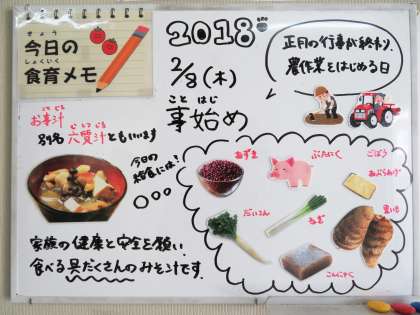 きょう
今日の
しょくいく
食育メモ
2018
2/8(木)
こと はじ
事始め
正月の行事が終わり、
農作業をはじめる日
おことじる
お事汁
むしつじる
別名 六質汁ともいいます
今日の
給食には!
家族の健康と安全を願い、
食べる具だくさんのみそ汁です。
あずき
ぶたにく
ごぼう
あぶらあげ
だいこん
ねぎ
里いも
こんにゃく